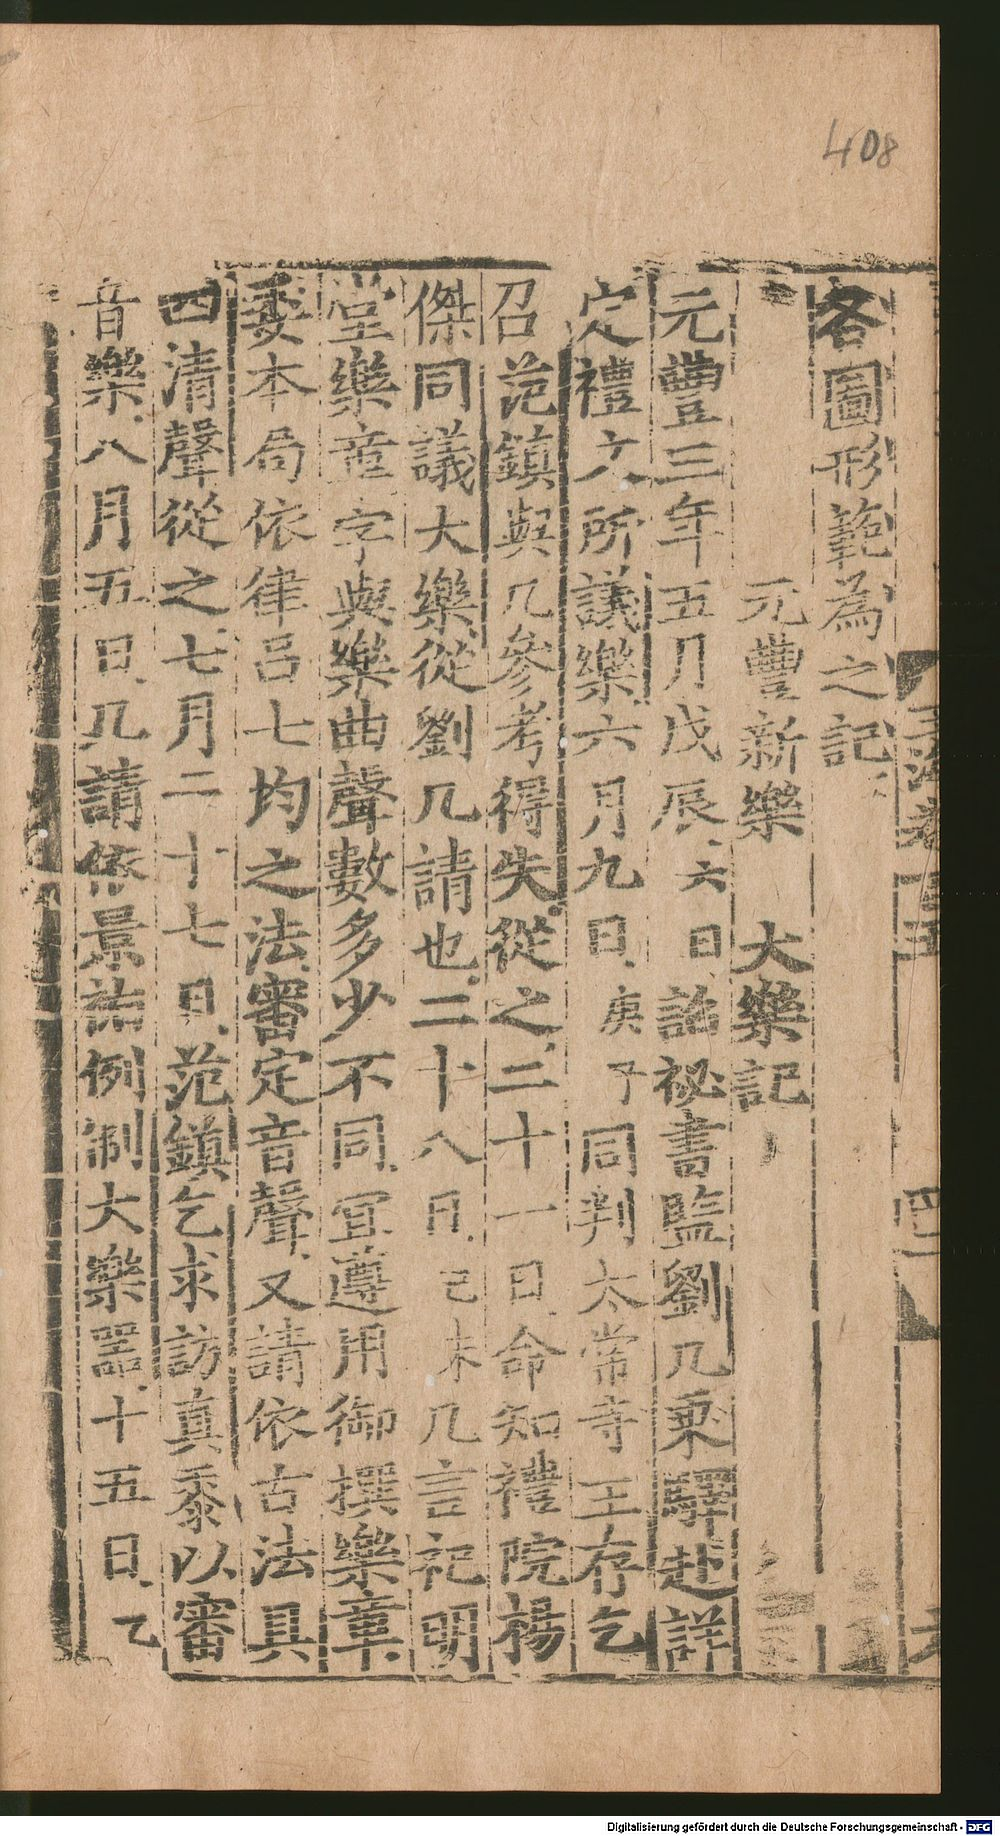 408
各圖形範為之記
元豐新樂　大樂記
元豐三年五月戊辰六日詔祕書監劉几乘驛赴詳
定禮文所議樂六月九日庚子同判太常寺王存乞
召范鎮與几參考得失從之二十一日命知禮院楊
傑同議大樂從劉几請也二十八日己未几言祀明
堂樂章字與樂曲聲數多少不同宜遵用御撰樂章
委本局依律呂七均之法審定音聲又請依古法具
四清聲從之七月二十七日范鎮乞求訪真黍以審
音樂八月五日几請依景祐例制大樂器十五日乙
Digitalisierung gefördert durch die Deutsche Forschungsgemeinschaft - DFG